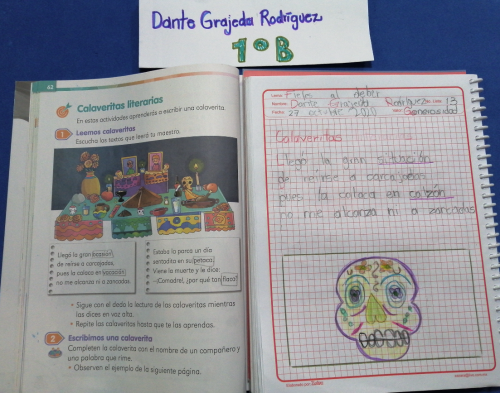 Dante Grajeda Rodríguez
1°B
42
Calaveritas literarias
En estas actividades aprenderás a escribir una calaverita.
1 Leemos calaveritas
Escucha los textos que leerá tu maestro.
Llegó la gran ocasión
de reírse a carcajadas,
pues la calaca en vacación
no me alcanza ni a zancadas.
Estaba la parca un día
sentadita en su petaca;
Viene la muerte y le dice:
—¡Comadre!, ¿por qué tan flaca?
• Sigue con el dedo la lectura de las calaveritas mientras
las dices en voz alta.
• Repite las calaveritas hasta que te las aprendas.
2 Escribimos una calaverita
Completen la calaverita con el nombre de un compañero y
una palabra que rime.
• Observen el ejemplo de la siguiente página.
al deber
Nombre: Dante Grajeda Rodríguez 13
Fecha: 27 Valor: Generosidad
Calaveritas
Llegó la gran
de reirse a carcajadas
pues la calaca en calzón
no me alcanza ni a zancadas